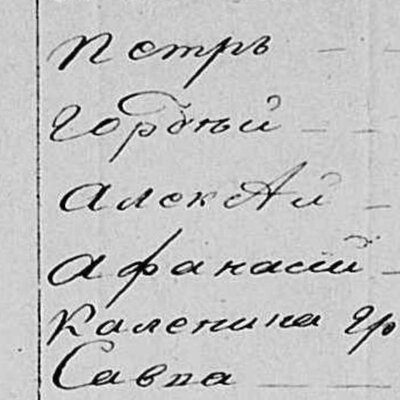 Петръ
Гордѣй
АлекѣАй
Афанасій
Каленика гр
Савва